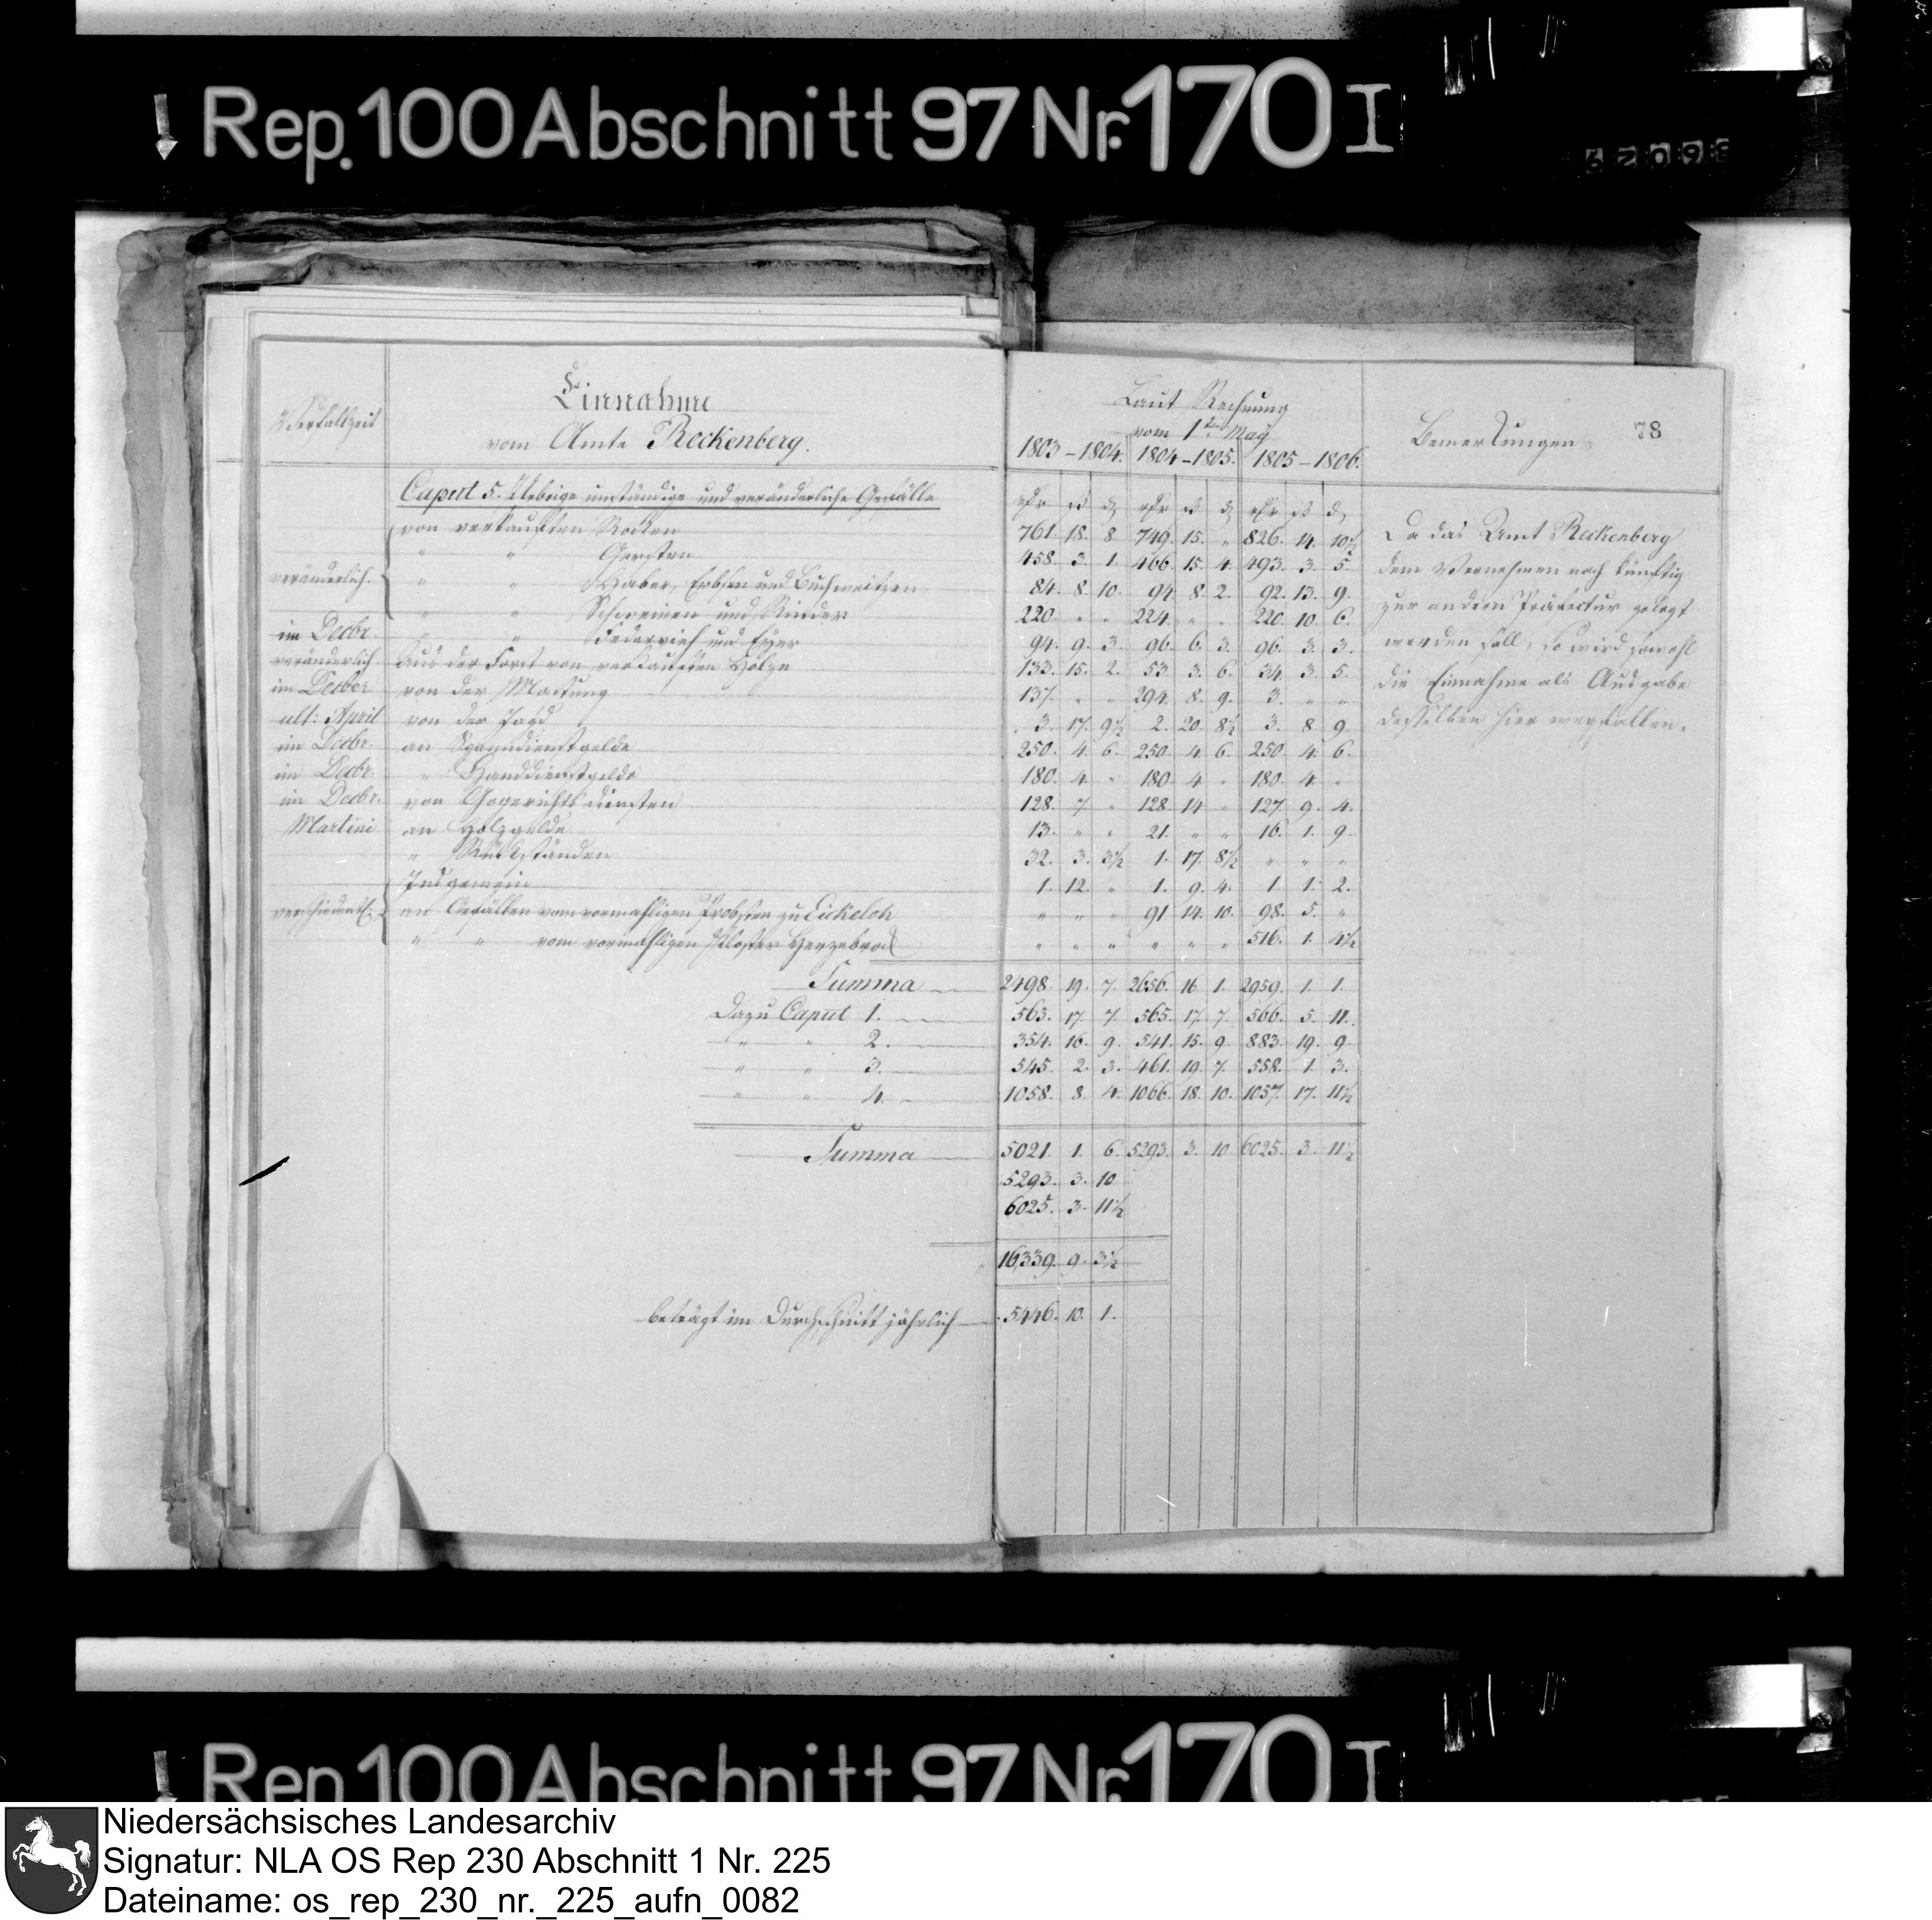 Rep. 100 Abschnitt 97 Nr. 170 I
62098
Verfallzeit
Einnahme
vom Amte Reckenberg.
Laut Rechnung
vom 1ten May
1803 – 1804. 1804 – 1805. 1805 – 1806.
Bemerkungen
78
Caput 5. Uebrige unständige und veränderliche Gefälle
rthr ß d rthr ß d rthr ß d
von verkauften Rocken 761. 18. 8. 749. 15. " 826. 14. 10½
" " Gersten 458. 3. 1. 466. 15. 4. 493. 3. 5.
veränderlich. " " Haber, Erbsen und Buchweitzen 84. 8. 10. 94. 8. 2. 92. 13. 9.
" " Schweinen und Rinder 220. " " 224. " " 220. 10. 6.
im Decbr. " " Federvieh und Eyer 94. 9. 3. 96. 6. 3. 96. 3. 3.
veränderlich. Aus der Forst von verkauften Holze 133. 15. 2. 53. 3. 6. 34. 3. 5.
im Decber von der Mastung 137. " " 294. 8. 9. 3. " "
ult: April von der Jagd 3. 17. 9½ 2. 20. 8½ 3. 8. 9.
im Decbr. an Spanndienstgelde 250. 4. 6. 250. 4. 6. 250. 4. 6.
im Decbr. " Handdienstgelde 180. 4. " 180. 4. " 180. 4. "
im Decbr. von Gogerichts diensten 128. 7. " 128. 14. " 127. 9. 4.
Martini an Holzgelde 13. " " 21. " " 16. 1. 9.
" Rückständen 32. 3. 3½ 1. 17. 8½ " " "
Insgemein 1. 12. " 1. 9. 4. 1. 1. 2.
verschiedentl: an Gefällen vom vormahligen Probsten zu Eickeloh " " " 91. 14. 10. 98. 5. "
" " vom vormahligen Kloster Herzebrock " " " " " " 516. 1. 4½
Summa 2498. 19. 7. 2656. 16. 1. 2959. 1. 1.
Dazu Caput 1. 563. 17. 7. 565. 17. 7. 566. 5. 11.
" " 2. 354. 16. 9. 541. 15. 9. 883. 19. 9.
" " 3. 545. 2. 3. 461. 19. 7. 558. 1. 3.
" " 4. 1058. 8. 4. 1066. 18. 10. 1057. 17. 11½
Summa 5021. 1. 6. 5293. 3. 10. 6025. 3. 11½
5293. 3. 10
6025. 3. 11½
16,339. 9. 3½
beträgt im Durchschnitt jährlich 5446. 10. 1.
Da das Amt Reckenberg
dem Vernehmen nach künftig
zur andern Präfectur gelegt
werden soll, so wird sowohl
die Einnahme als Ausgabe
desselben hier wegfallen.
Rep. 100 Abschnitt 97 Nr. 170 I
Niedersächsisches Landesarchiv
Signatur: NLA OS Rep 230 Abschnitt 1 Nr. 225
Dateiname: os_rep_230_nr._225_aufn_0082